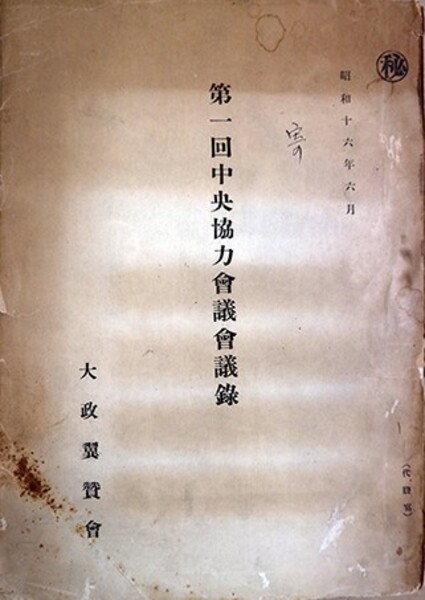 秘
昭和十六年六月
寄
第一回中央協力會議會議錄
大政翼贊會
(代謄寫)